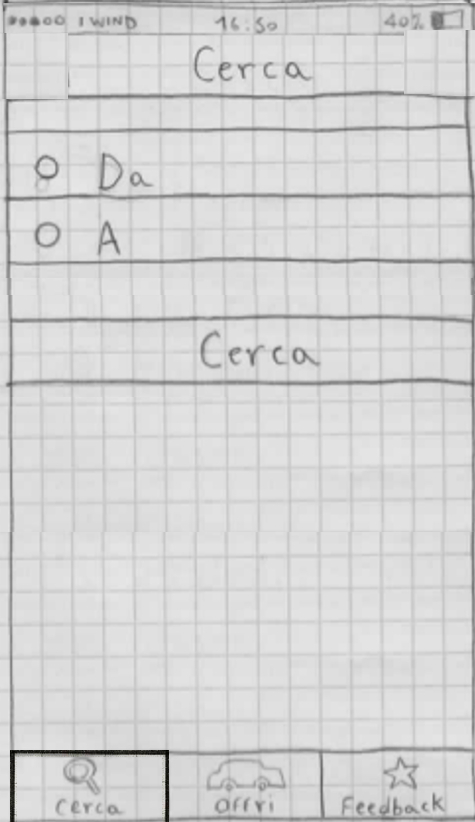 I WIND 16:50 40%
Cerca
Da
A
Cerca
Cerca Offri Feedback